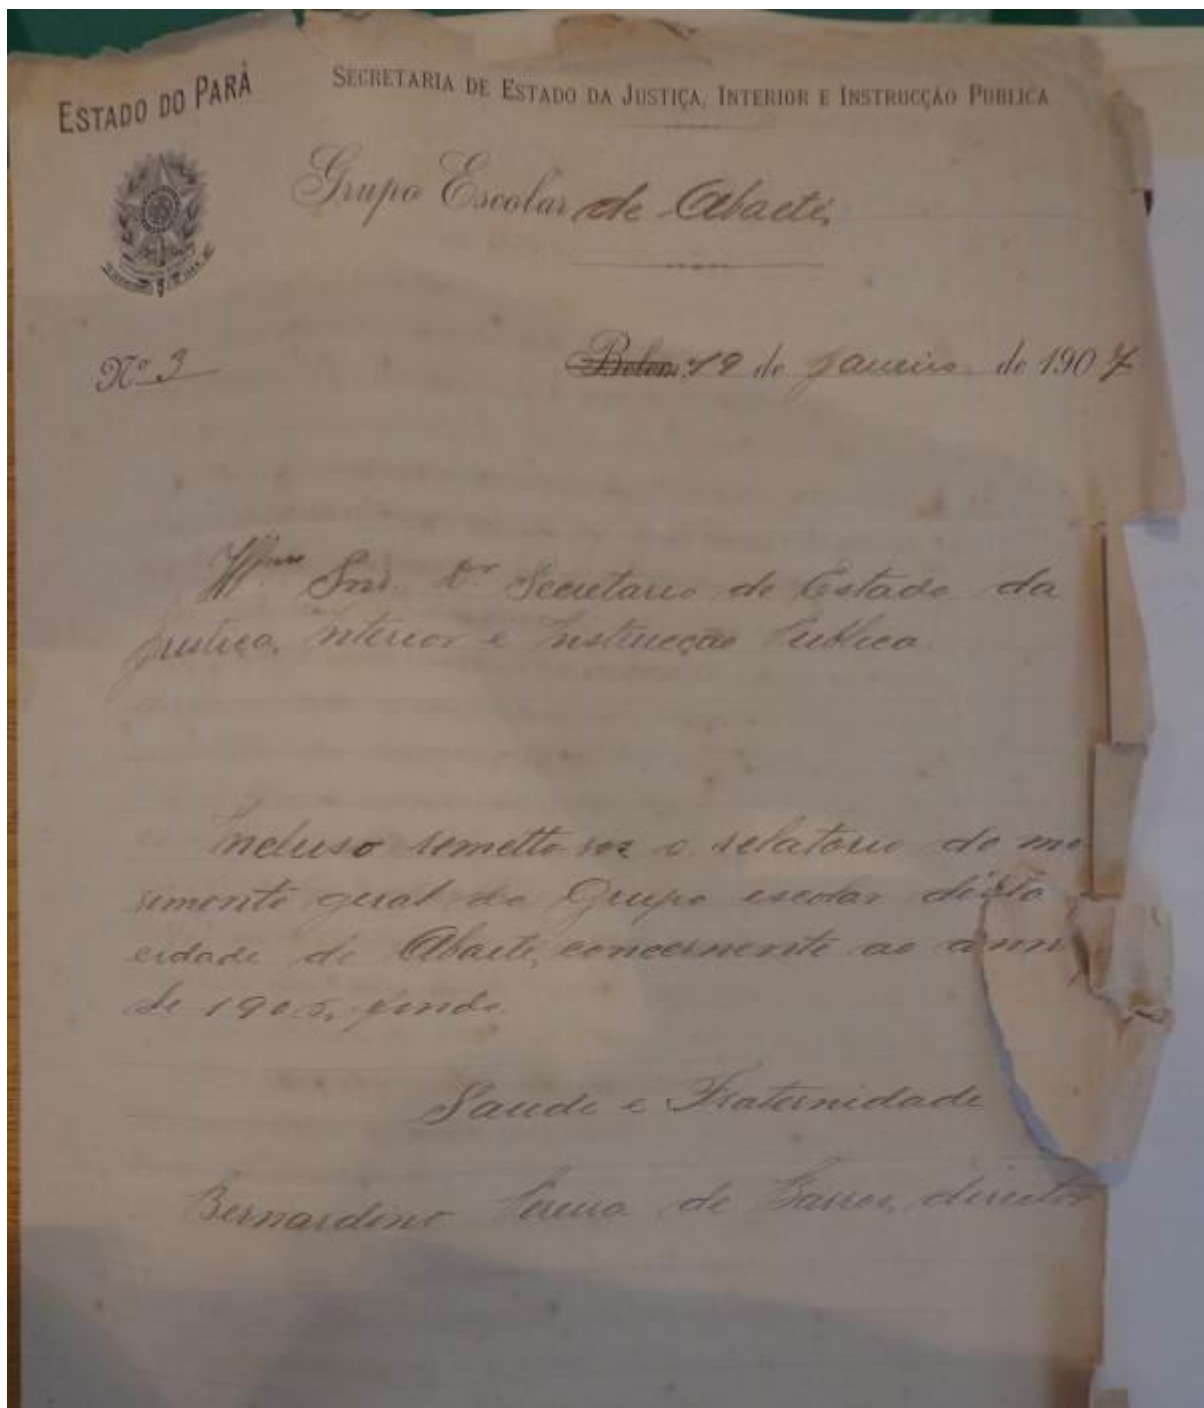 ESTADO DO PARÁ
SECRETARIA DE ESTADO DA JUSTIÇA, INTERIOR E INSTRUCÇÃO PUBLICA
Grupo Escolar de Abaeté,
Nº 3
Belem, 19 de Janeiro de 1907
Illmo Snr. Dr Secretario de Estado da
Justiça, Interior e Instrucção Publica.
Incluso remetto-vos o relatorio do mo
vimento geral do Grupo escolar desta
cidade de Abaeté, concernente ao ann
de 190 findo.
Saude e Fraternidade
Bernardino Pereira de Barros, director